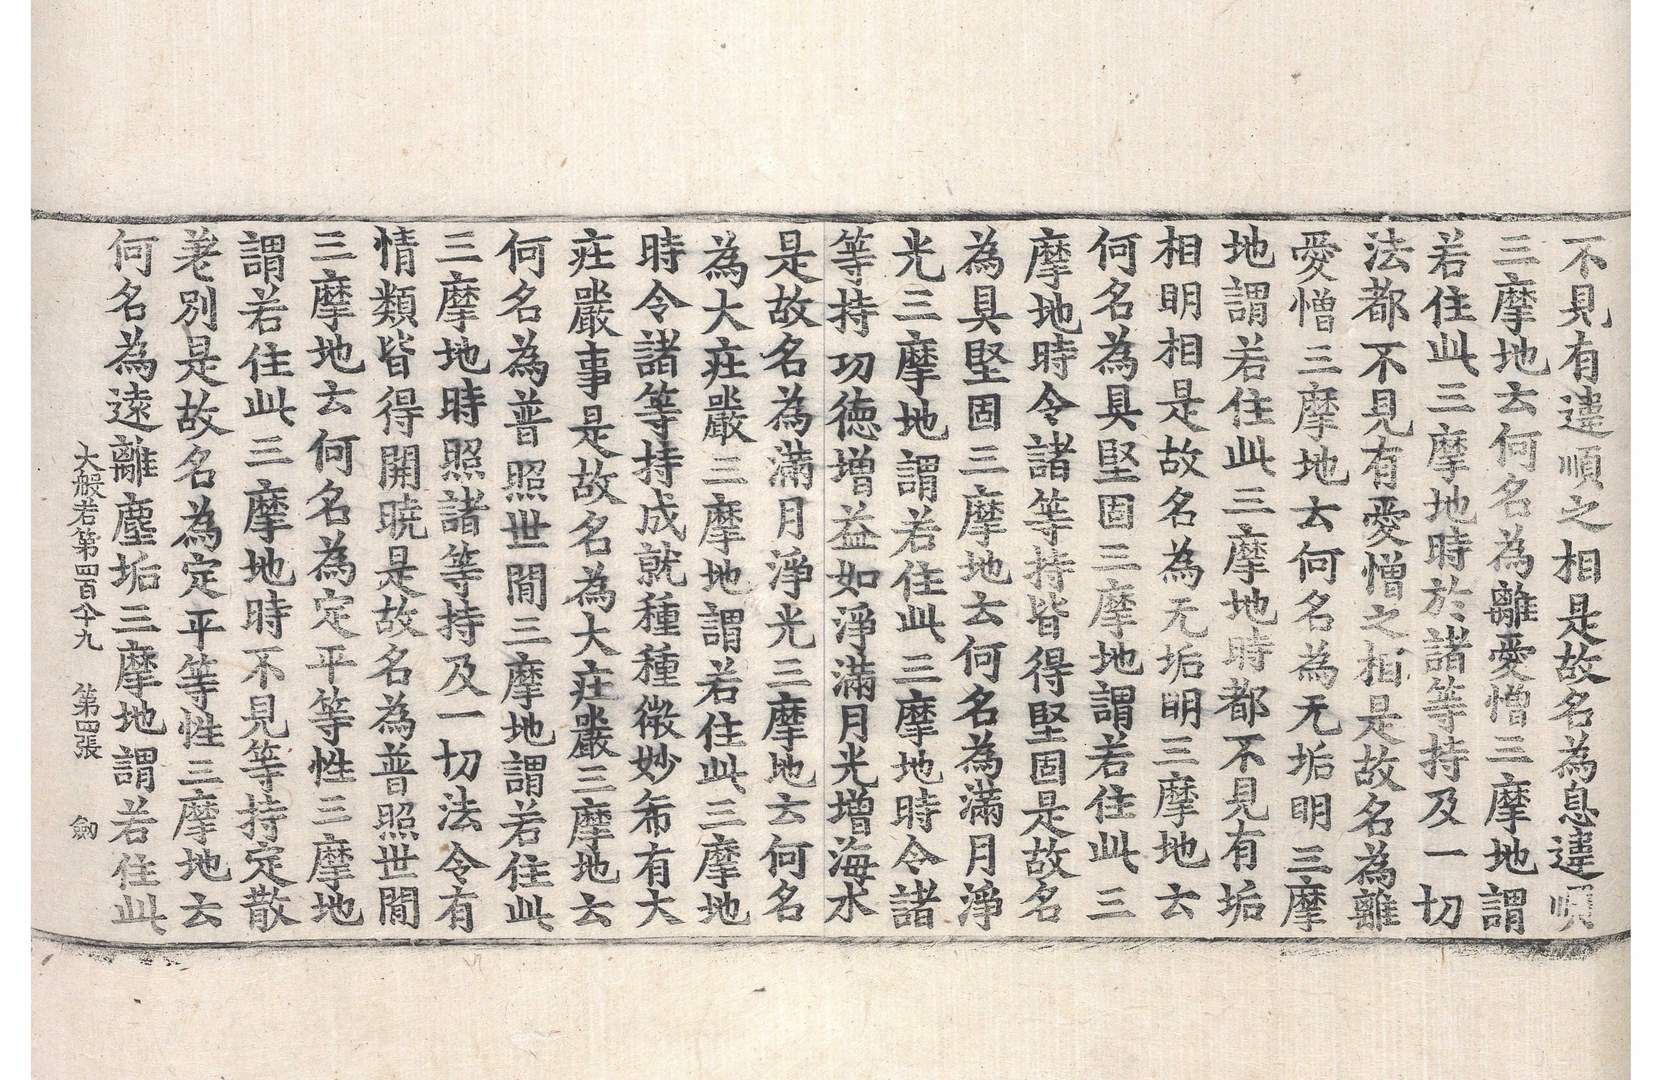 不見有違順之相是故名為息違順
三摩地去何名為離愛憎三摩地謂
若住此三摩地時於諸等持及一切
法都不見有愛憎之相是故名為離
愛憎三摩地去何名為无垢明三摩
地謂若住此三摩地時都不見有垢
相明相是故名為无垢明三摩地去
何名為具堅固三摩地謂若住此三
摩地時令諸等持皆得堅固是故名
為具堅固三摩地去何名為滿月淨
光三摩地謂若住此三摩地時令諸
等持功德增益如淨滿月光增海水
是故名為滿月淨光三摩地去何名
為大庄嚴三摩地謂若住此三摩地
時令諸等持成就種種微妙希有大
庄嚴事是故名為大庄嚴三摩地去
何名為普照世間三摩地謂若住此
三摩地時照諸等持及一切法令有
情類皆得開曉是故名為普照世間
三摩地去何名為定平等性三摩地
謂若住此三摩地時不見等持定散
差別是故名為定平等性三摩地去
何名為遠離塵垢三摩地謂若住此
大般若第四百八十九 第四張 劒